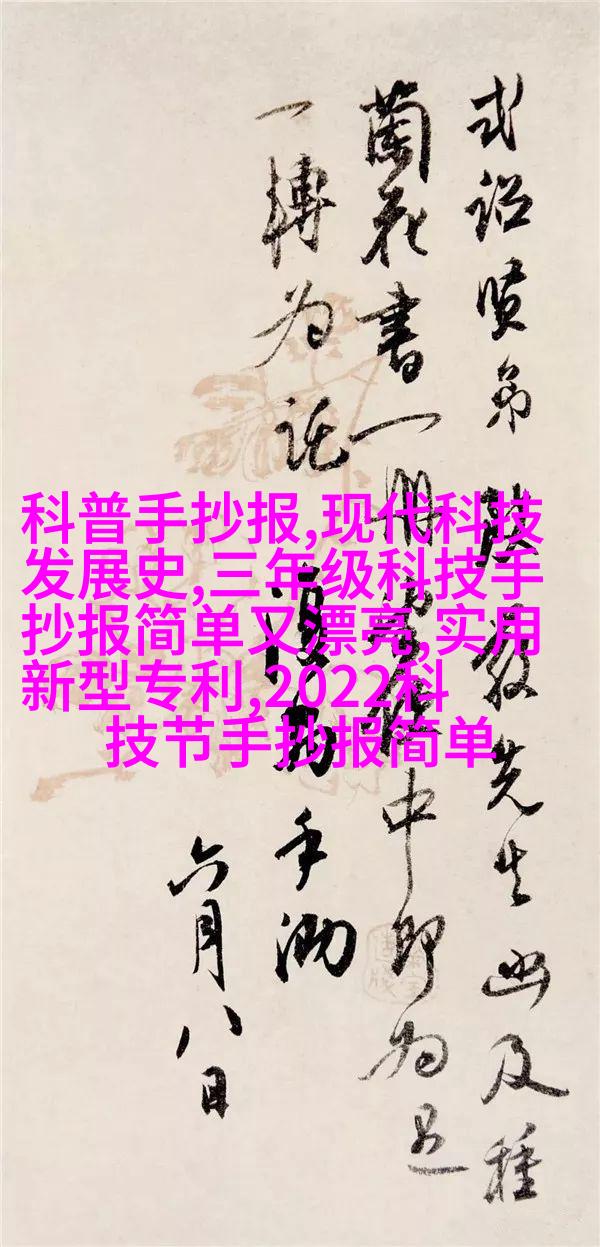 贤弟 先生函及種
蘭花書一冊中即为
一轉为託手泐
六月八日
科普手抄报,现代科技
发展史,三年级科技手
抄报简单又漂亮,实用
新型专利,2022科
技节手抄报简单